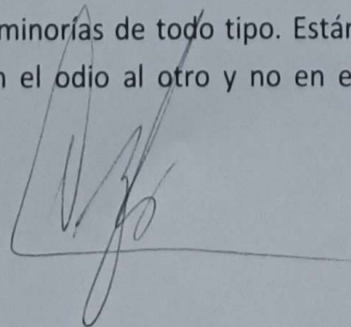 minorías de todo tipo. Están
el odio al otro y no en e